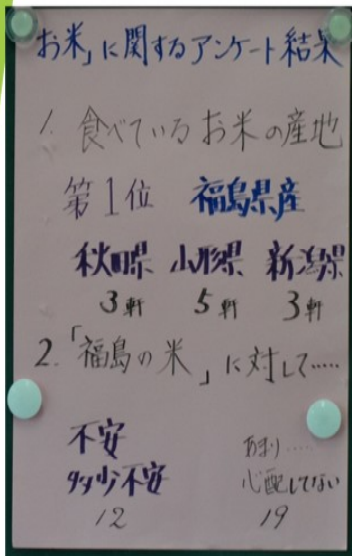 お米」に関するアンケート結果
1. 食べているお米の産地
第1位 福島県産
秋田県 山形県 新潟県
3軒 5軒 3軒
2.「福島の米」に対して……
不安 あまり……
多少不安 心配してない
12 19